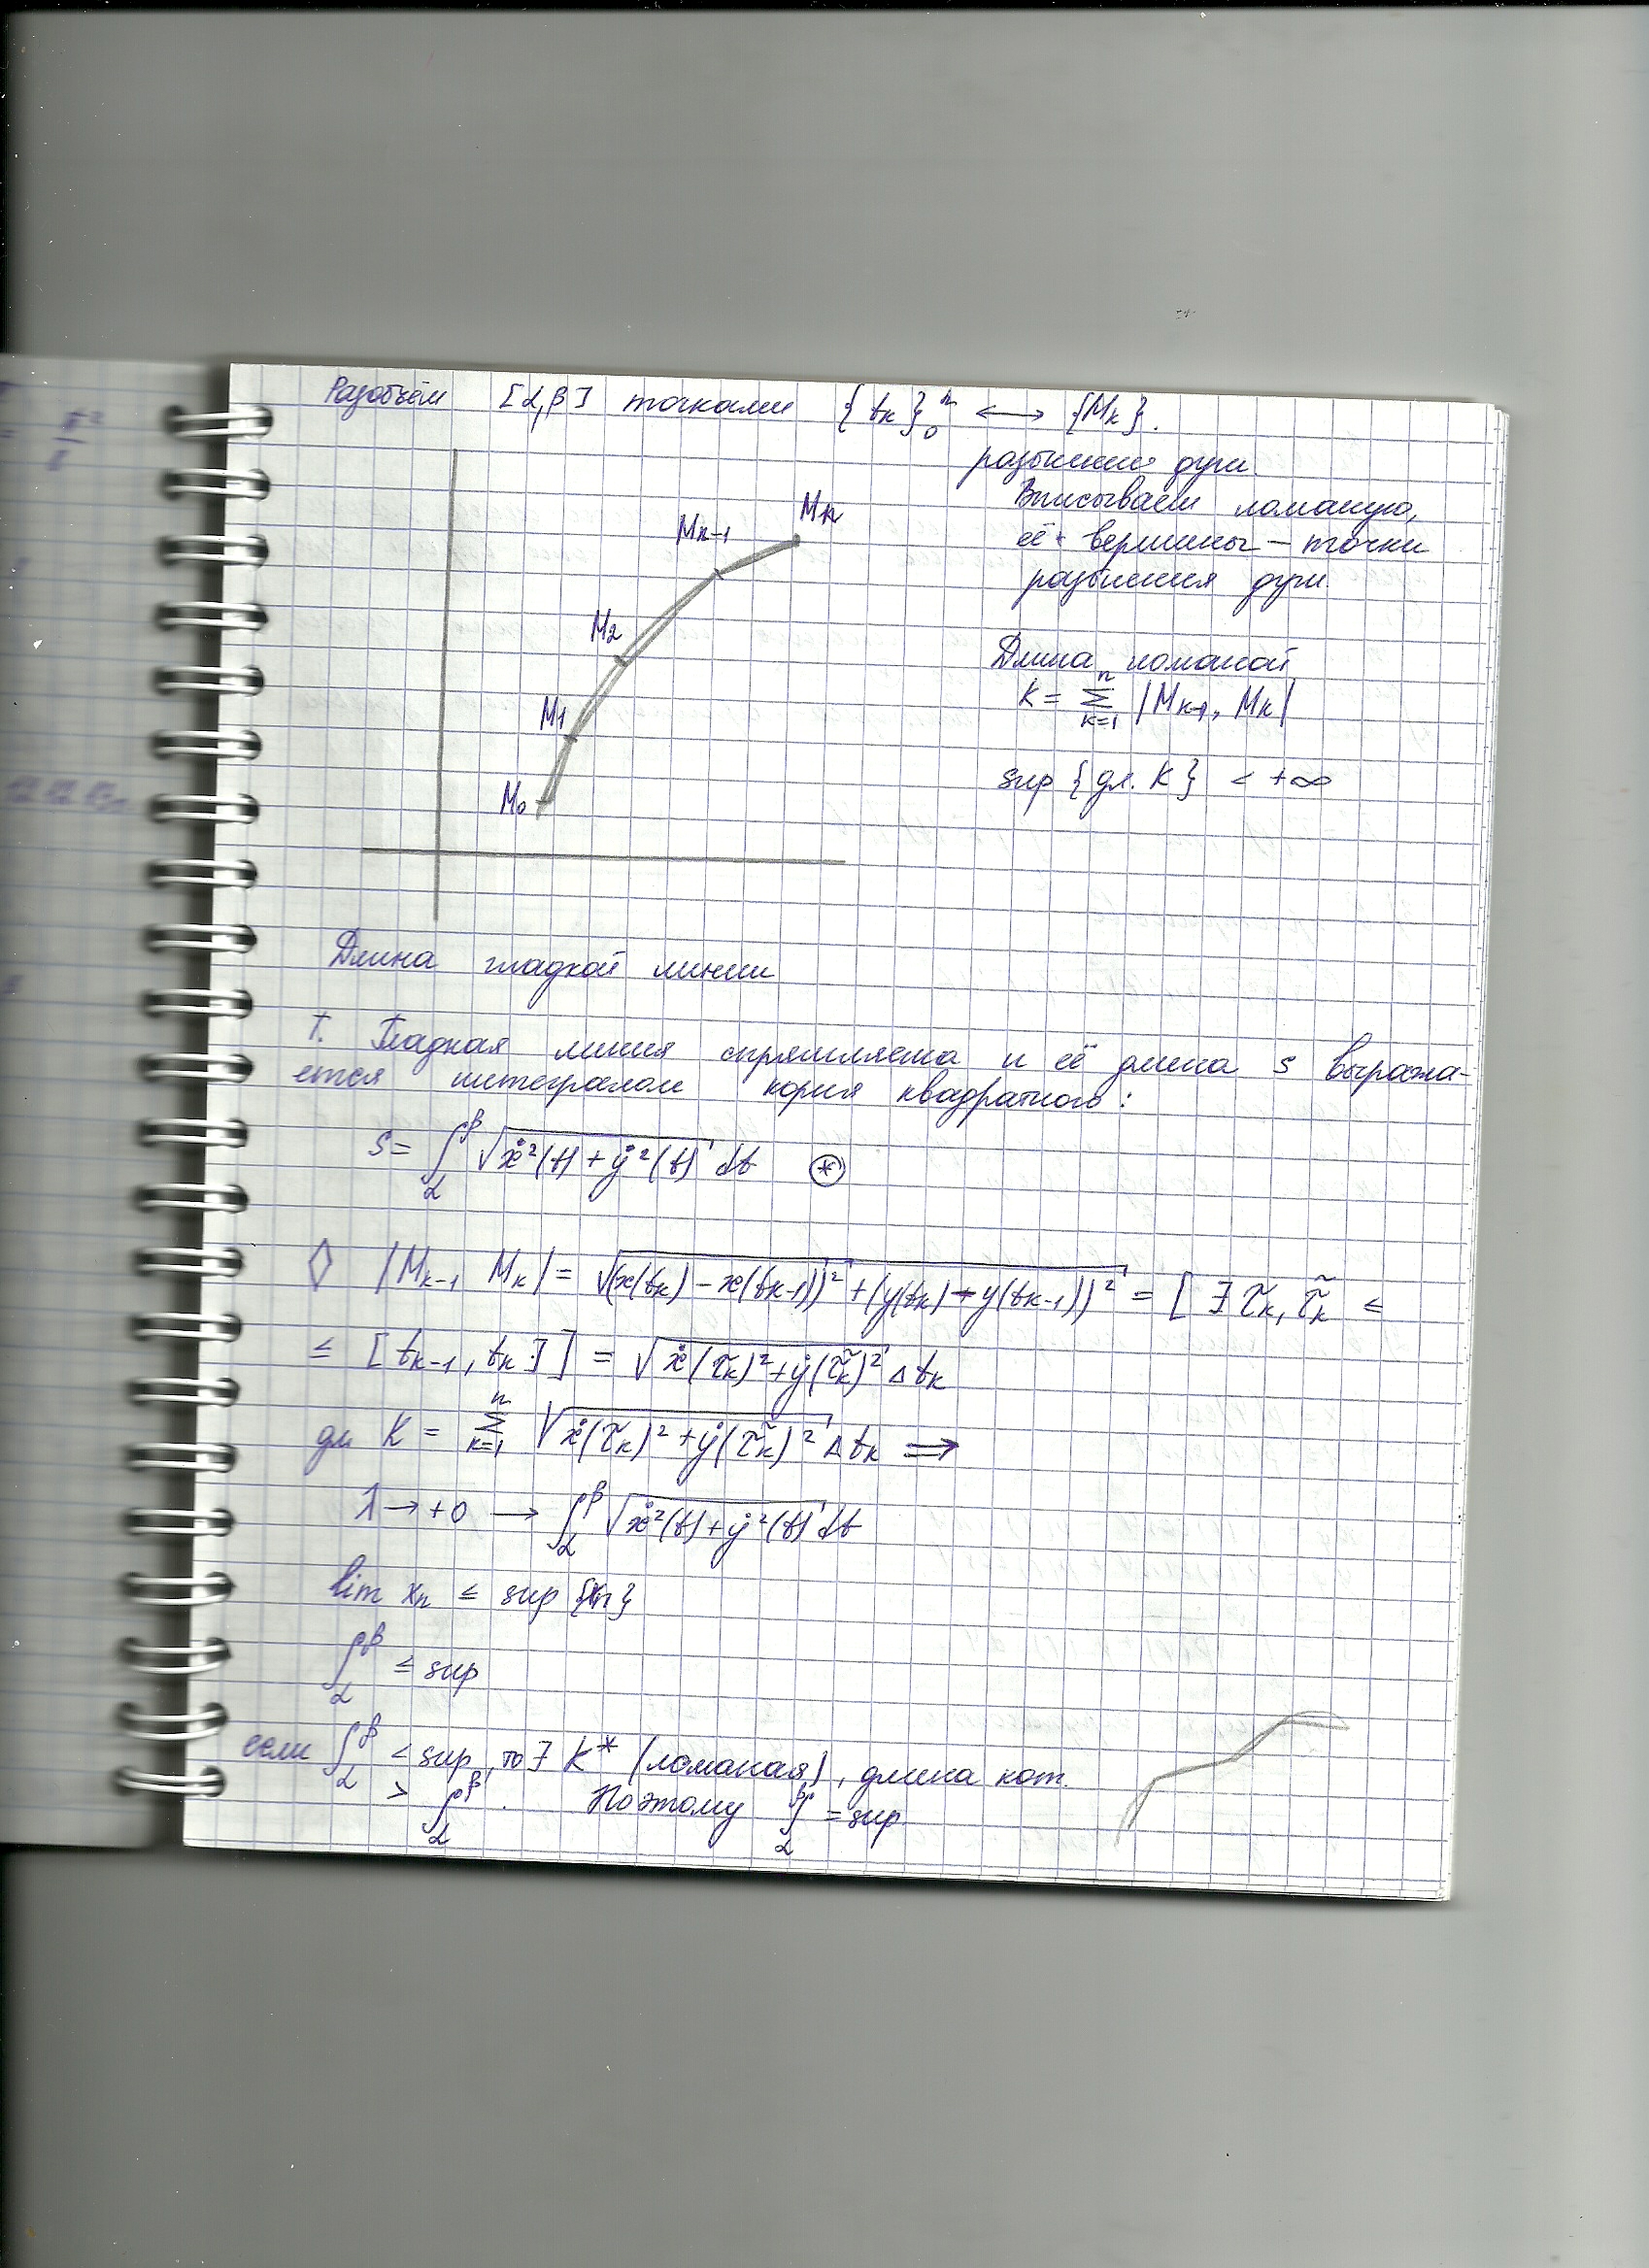 Разобьём [α,β] точками {tk}₀ⁿ ⟷ {Mk}.
разбиение дуги.
Вписываем ломаную,
её вершины – точки
разбиения дуги.
Mk
Mk-1
M2
M1
M0
Длина ломаной
K = Σ_{k=1}^{n} |Mk-1, Mk|
sup {дл. K} < +∞
Длина гладкой линии
Т. Гладкая линия спрямляема и её длина s выража-
ется интегралом корня квадратного:
S = ∫_α^β √(ẋ²(t) + ẏ²(t)) dt ⊛
◊ |Mk-1 Mk| = √((x(tk) – x(tk-1))² + (y(tk) – y(tk-1))²) = [∃ τk, τ̃k ≤
≤ [tk-1, tk]] = √(ẋ(τk)² + ẏ(τ̃k)²) Δtk
дл K = Σ_{k=1}^{n} √(ẋ(τk)² + ẏ(τ̃k)²) Δtk ⟹
λ → +0 ⟶ ∫_α^β √(ẋ²(t) + ẏ²(t)) dt
lim xn ≤ sup {xn}
∫_α^β ≤ sup
если ∫_α^β < sup, то ∃ K* (ломаная), длина кот.
> ∫_α^β. Поэтому ∫_α^β = sup.